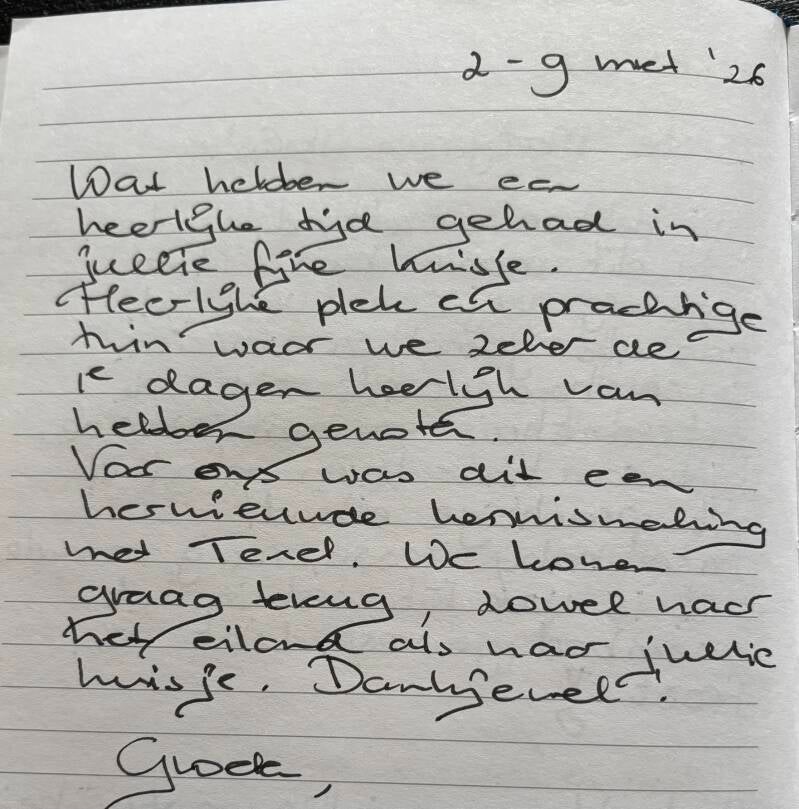 2 - 9 mei '26
Wat hebben we een
heerlijke tijd gehad in
jullie fijne huisje.
Heerlijke plek en prachtige
tuin waar we zeker de
1e dagen heerlijk van
hebben genoten.
Voor ons was dit een
hernieuwde kennismaking
met Texel. We komen
graag terug, zowel naar
het eiland als naar jullie
huisje. Dankjewel!
Groeten,